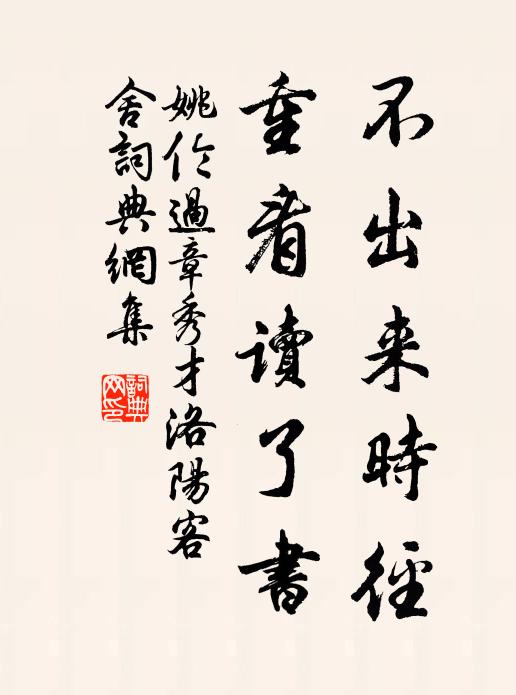 不出来時径
重看讀了書
姚伦過章秀才洛陽客
舍詞典網集
詞典网印